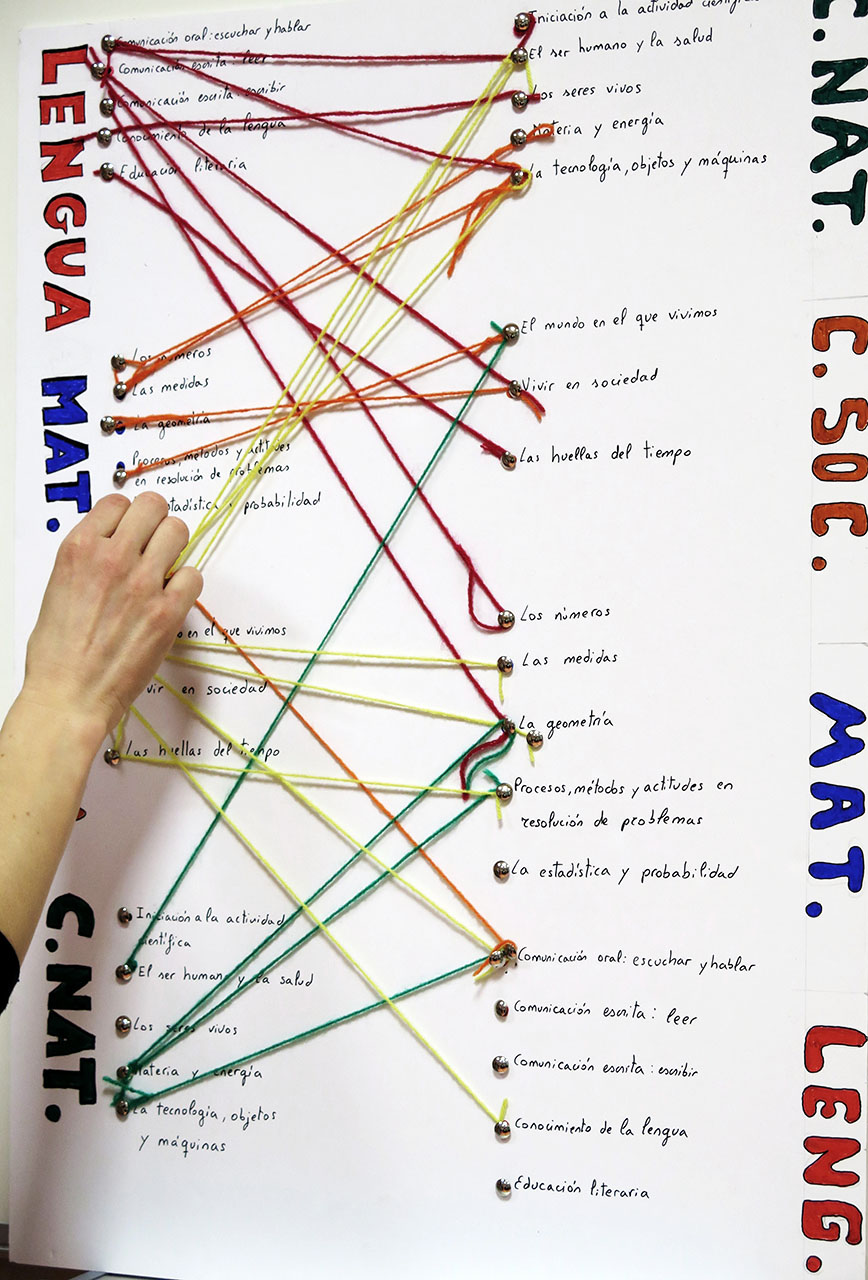 LENGUA
Comunicación oral: escuchar y hablar
Comunicación escrita: leer
Comunicación escrita: escribir
Conocimiento de la lengua
Educación literaria
MAT.
Los números
Las medidas
La geometría
Procesos, métodos y actitudes
en resolución de problemas
estadística y probabilidad
en el que vivimos
vivir en sociedad
Las huellas del tiempo
C.NAT.
Iniciación a la actividad
científica
El ser humano y la salud
Los seres vivos
Materia y energía
La tecnología, objetos
y máquinas
C.NAT.
Iniciación a la actividad científica
El ser humano y la salud
Los seres vivos
Materia y energía
La tecnología, objetos y máquinas
C.SOC.
El mundo en el que vivimos
Vivir en sociedad
Las huellas del tiempo
MAT.
Los números
Las medidas
La geometría
Procesos, métodos y actitudes en
resolución de problemas
La estadística y probabilidad
LENG.
Comunicación oral: escuchar y hablar
Comunicación escrita: leer
Comunicación escrita: escribir
Conocimiento de la lengua
Educación literaria